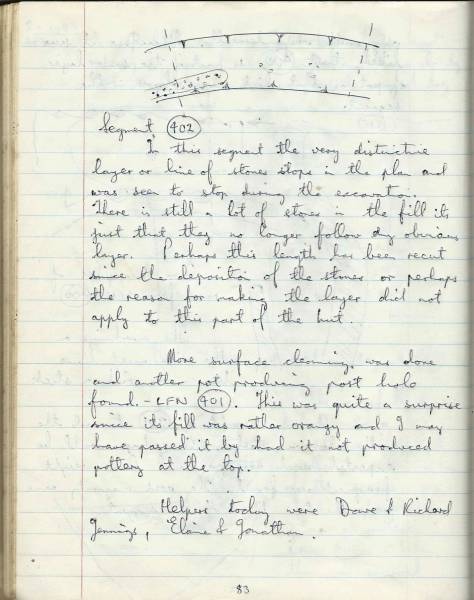 Segment 402
In this segment the very distinctive
layer or line of stones stops in the plan and
was seen to stop during the excavation.
There is still a lot of stones in the fill its
just that they no longer follow any obvious
layer. Perhaps this length has been recut
since the deposition of the stones or perhaps
the reason for making the layer did not
apply to this part of the hut.
More surface cleaning was done
and another pot producing post hole
found. - LFN 401. This was quite a surprise
since its fill was rather orangy and I may
have passed it by had it not produced
pottery at the top.
Helpers today were Dave & Richard
Jennings, Elaine & Jonathan.
83